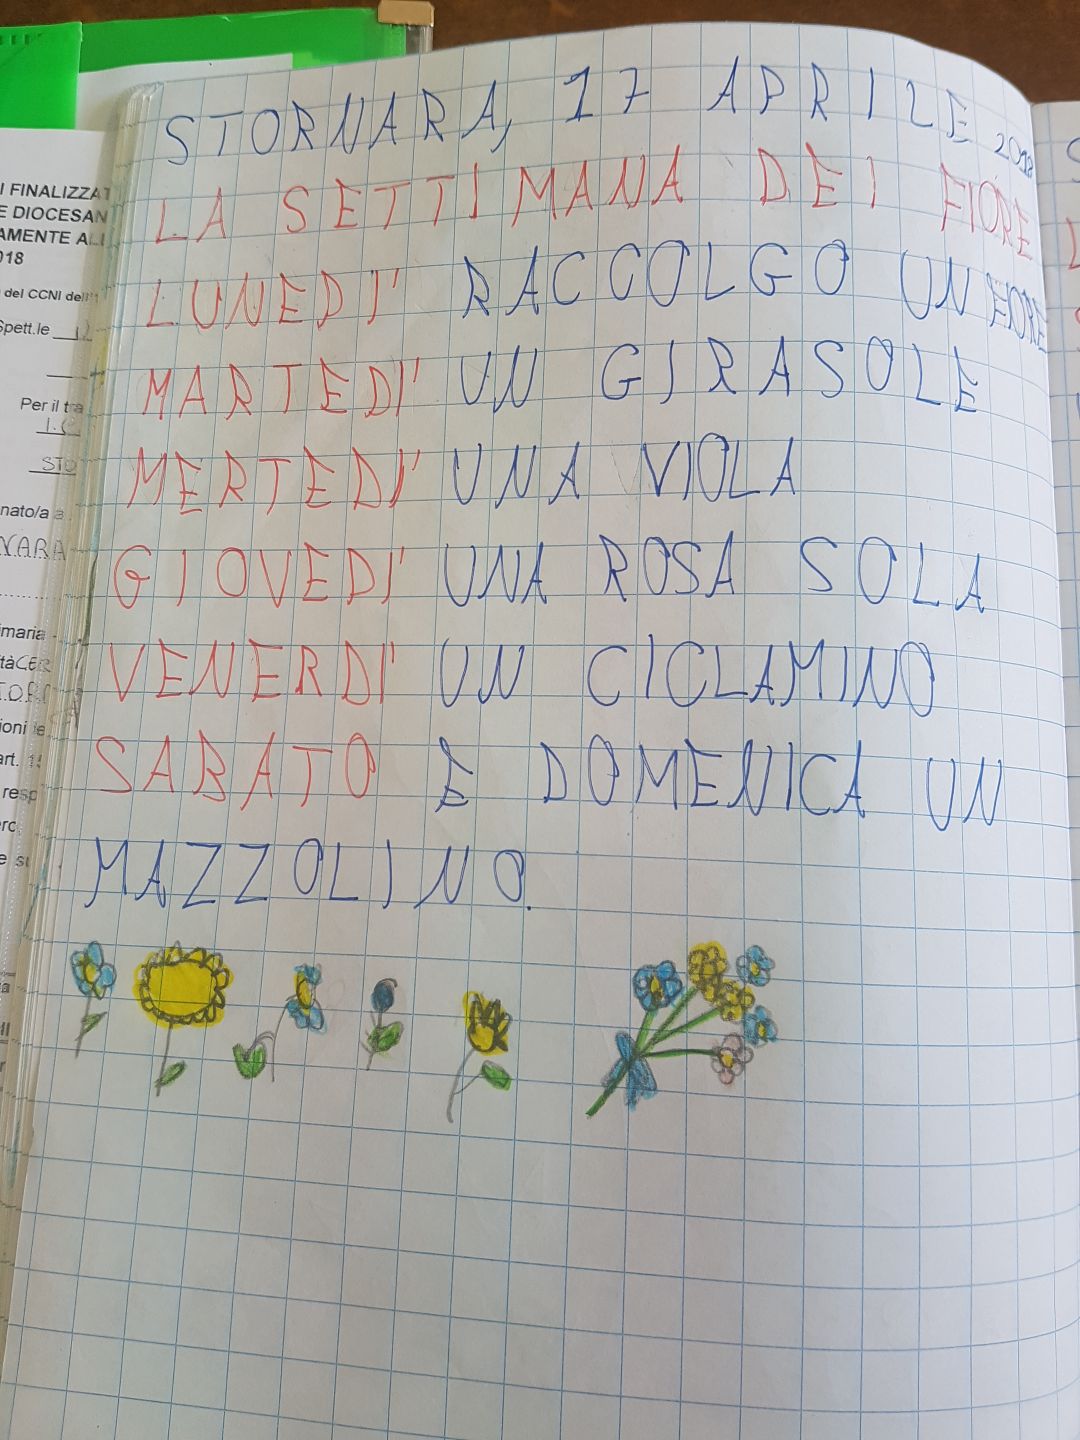 STORNARA, 17 APRILE 2018
LA SETTIMANA DEI FIORE
LUNEDI' RACCOLGO UN FIORE
MARTEDI' UN GIRASOLE
MERTEDI' UNA VIOLA
GIOVEDI' UNA ROSA SOLA
VENERDI' UN CICLAMINO
SABATO E DOMENICA UN
MAZZOLINO.
I FINALIZZAT
E DIOCESAN
AMENTE AL
018
del CCNI dell'
Spett.le
Per il tra
STO
nato/a a
NARA
imaria -
tà CER
ioni
art.
resp